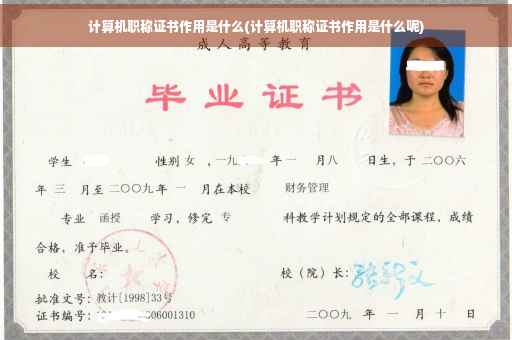 计算机职称证书作用是什么(计算机职称证书作用是什么呢)
成人高等教育
毕业证书
学生 性别 女 ，一九 年 一 月 八 日生，于 二〇〇六
年 三 月至 二〇〇九 年 一 月在本校 财务管理
专业 函授 学习，修完 专 科教学计划规定的全部课程，成绩
合格，准予毕业。
校 名： 校（院）长：
批准文号：教计[1998]33号
证书编号： 06001310 二〇〇九 年 一 月 十 日